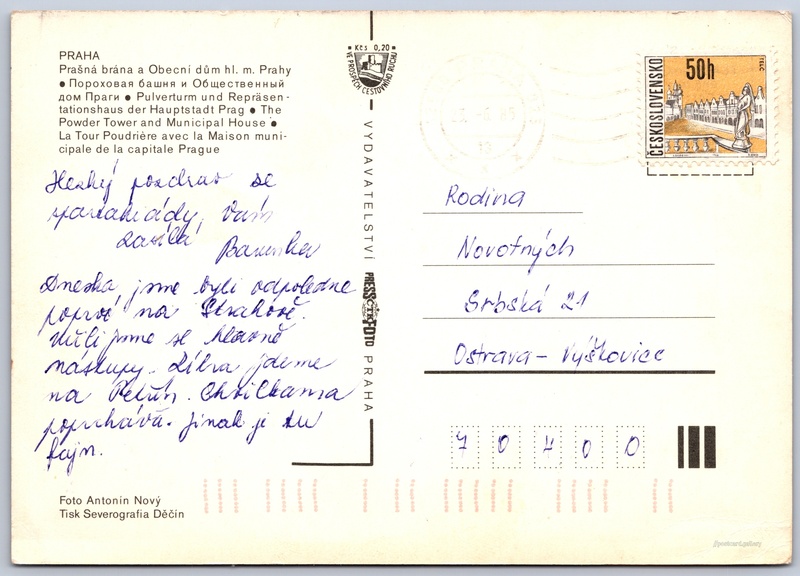 PRAHA
Prašná brána a Obecní dům hl. m. Prahy
● Пороховая башня и Общественный
дом Праги ● Pulverturm und Repräsen-
tationshaus der Hauptstadt Prag ● The
Powder Tower and Municipal House ●
La Tour Poudrière avec la Maison muni-
cipale de la capitale Prague
Hezký pozdrav ze
spartakiády, Vám
zasílá
Barunka
Dneska jsme byli odpoledne
poprvé na Strahově.
Učili jsme se hlavně
nástupy. Zítra jdeme
na Petřín. Chvilkama
poprchává. Jinak je tu
fajn.
Foto Antonín Nový
Tisk Severografia Děčín
Kčs 0,20
VE PROSPĚCH CESTOVNÍHO RUCHU
VYDAVATELSTVÍ
PRESSFOTO
ČTK
PRAHA
ČESKOSLOVENSKO
50h
TELČ
Rodina
Novotných
Srbská 21
Ostrava - Výškovice
70400